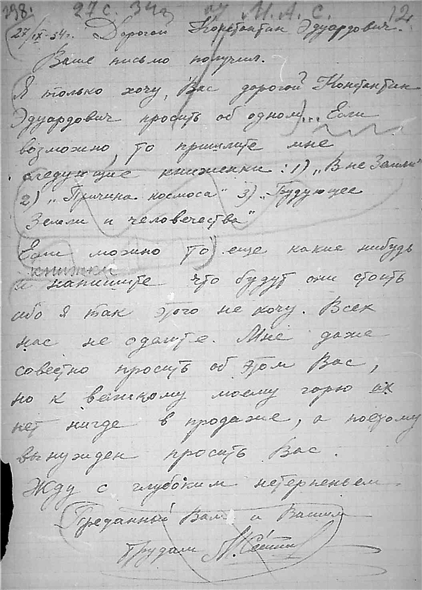 27 с. 34г. М. А. С. 12
27/IX-34г. Дорогой Константин Эдуардович.
Ваше письмо получил.
Я только хочу, Вас дорогой Константин
Эдуардович просить об одном... Если
возможно, то пришлите мне
следующие книженки: 1) „Вне Земли"
2) „Причина космоса" 3) „Будующее
Земли и человечества"
Если можно то еще какие нибудь
книжки
и напишите что будут они стоить
ибо я так этого не хочу. Всех
нас не одарите. Мне даже
совестно просить об этом Вас,
но к великому моему горю их
нет нигде в продаже, а поэтому
вынужден просить Вас.
Жду с глубоким нетерпеньем.
Преданный Вам и Вашим
трудам